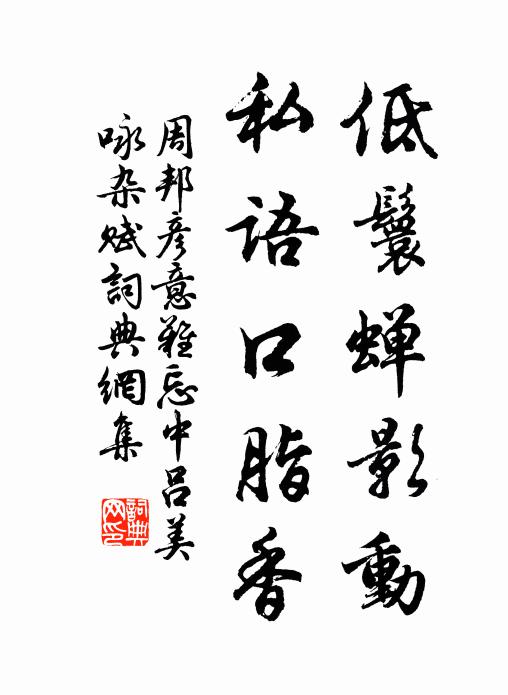 低鬟蝉影動
私語口脂香
周邦彦意難忘中呂美
咏杂赋詞典網集
詞典
网印